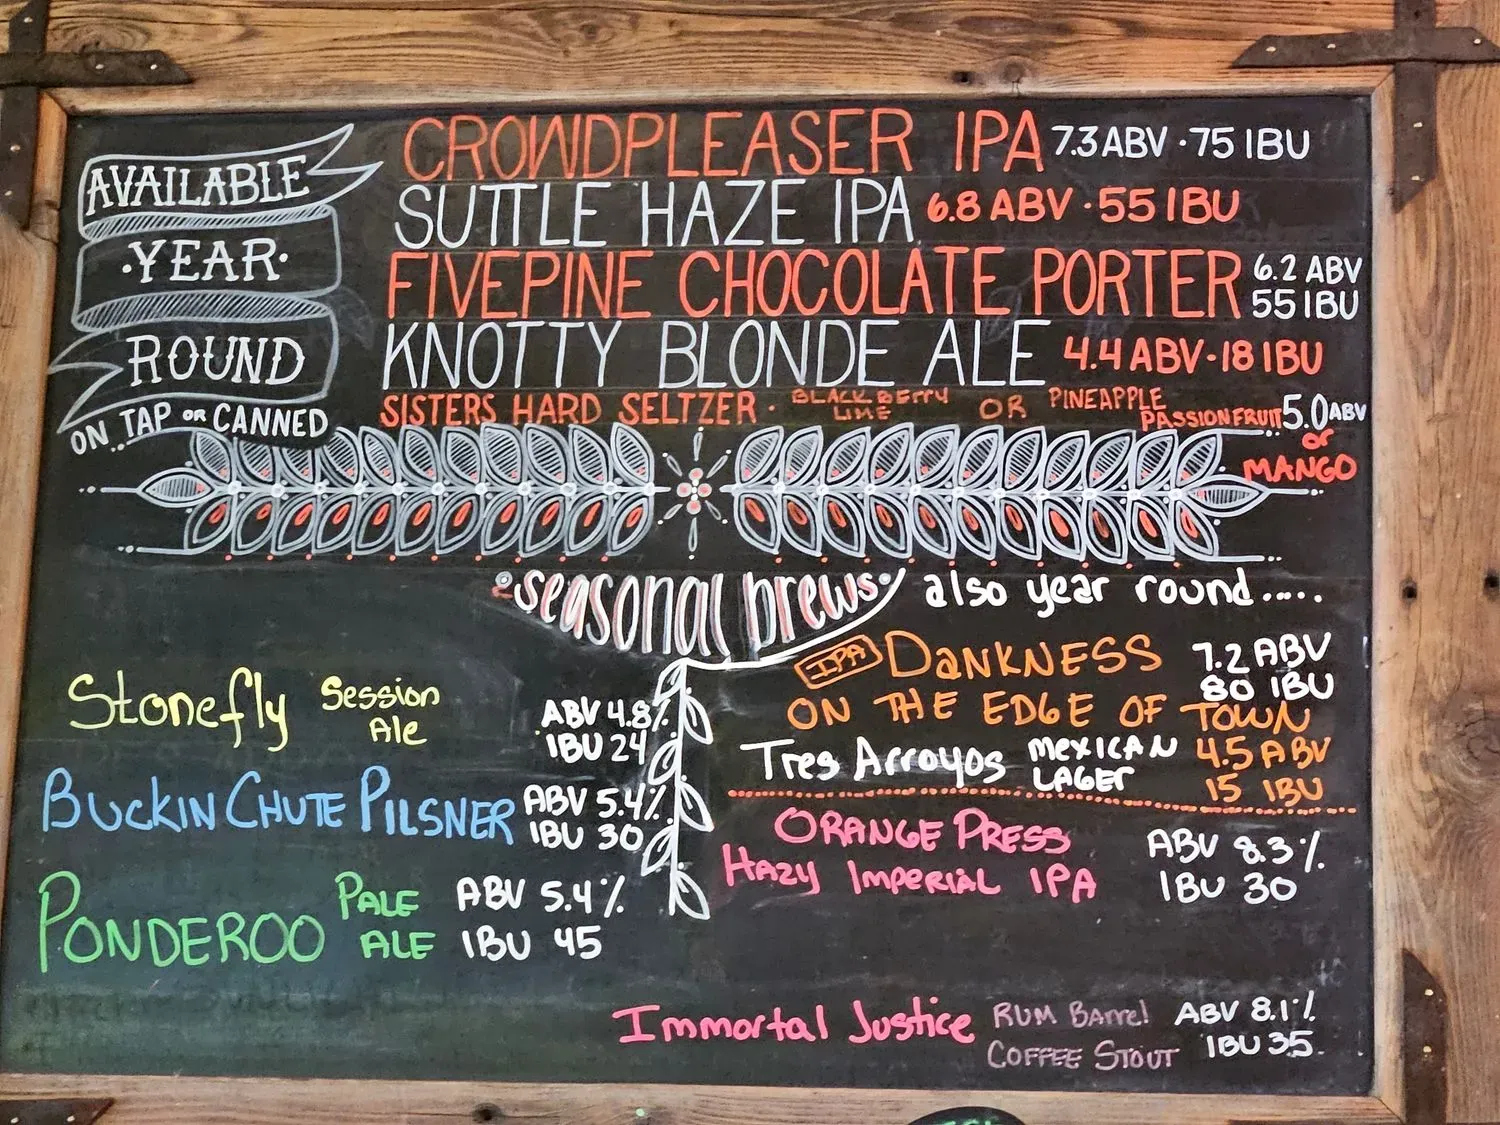 AVAILABLE
·YEAR·
ROUND
ON TAP OR CANNED
CROWDPLEASER IPA 7.3 ABV · 75 IBU
SUTTLE HAZE IPA 6.8 ABV · 55 IBU
FIVEPINE CHOCOLATE PORTER 6.2 ABV
55 IBU
KNOTTY BLONDE ALE 4.4 ABV · 18 IBU
SISTERS HARD SELTZER · BLACKBERRY
LIME OR PINEAPPLE
PASSIONFRUIT 5.0 ABV
or
MANGO
seasonal brews
Stonefly Session
Ale
ABV 4.8%
IBU 24
BUCKIN CHUTE PILSNER ABV 5.4%
IBU 30
PONDEROO PALE
ALE
ABV 5.4%
IBU 45
also year round.....
IPA DANKNESS 7.2 ABV
80 IBU
ON THE EDGE OF TOWN
Tres Arroyos MEXICAN
LAGER
4.5 ABV
15 IBU
ORANGE PRESS
HAZY IMPERIAL IPA
ABV 8.3%
IBU 30
Immortal Justice RUM BARREL
COFFEE STOUT
ABV 8.1%
IBU 35